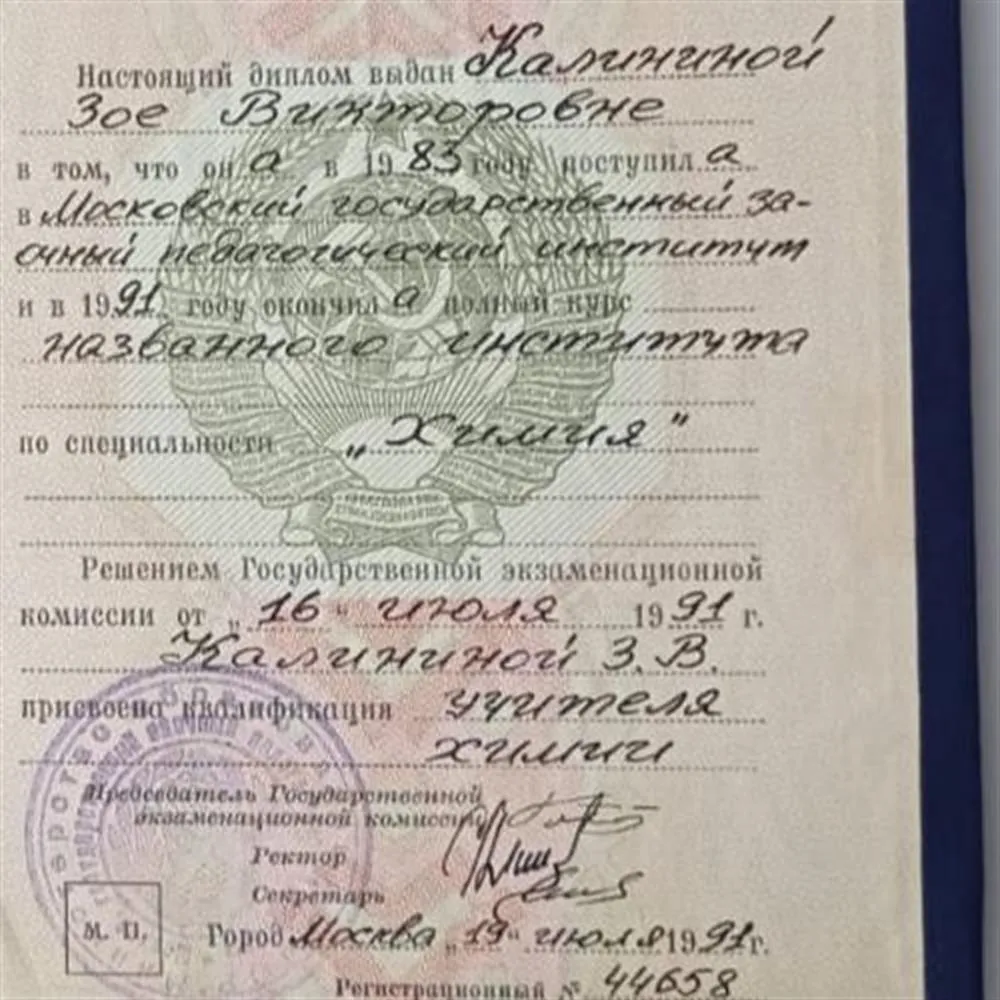 Настоящий диплом выдан Калининой
Зое Викторовне
в том, что он а в 1983 году поступил а
в Московский государственный за-
очный педагогический институт
и в 1991 году окончил а полный курс
названного института
по специальности „Химия"
Решением Государственной экзаменационной
комиссии от „16" июля 1991 г.
Калининой З. В.
присвоена квалификация учителя
химии
Председатель Государственной
экзаменационной комиссии
Ректор
Секретарь
М. П.
Город Москва „19" июля 1991 г.
Регистрационный № 44658